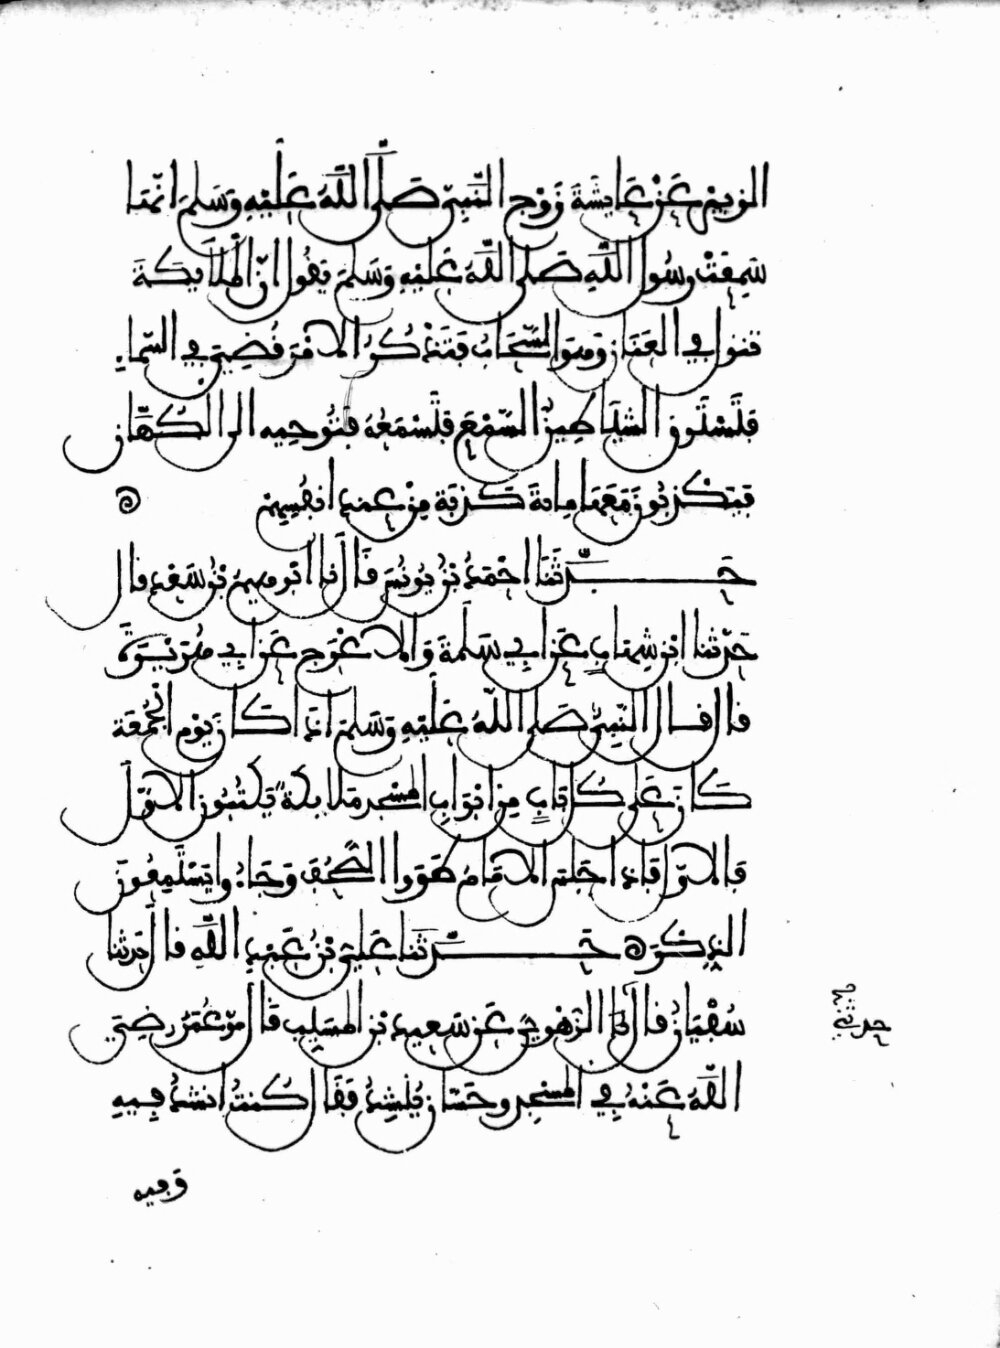 الزبير عَنْ عَايِشَةَ زَوْجِ النَّبِيِّ صَلَّى اللَّهُ عَلَيْهِ وَسَلَّمَ انّهَا
سَمِعَتْ رسُولَ اللَّهِ صَلَّى اللَّهُ عَلَيْهِ وَسَلَّمَ يَقُولُ انّ الْمَلَايِكَةَ
تنزل في العَنَانِ وَهوَ السَّحَابُ فَتَذْكُرُ الامْرَ قُضِيَ فِي السَّمَاءِ
فَتَسْتَرِقُ الشَّيَاطِينُ السَّمْعَ فَتَسْمَعُهُ فَتُوحِيهِ الى الْكُهَّانِ
فَيَكْذِبُونَ مَعَهَا مِائَةَ كَذْبَةٍ مِنْ عِنْدِ انفُسِهِمْ
حَدَّثَنَا احْمَدُ بْنُ يُونُسَ قَالَ نَا ابْرَهِيمُ بْنُ سَعْدٍ قال
حَدّثنا ابْنُ شِهَابٍ عَنْ ابِي سَلَمَةَ وَالاعْرَجِ عَنْ ابِي هُرَيْرَةَ
قال قال النَّبِيُّ صَلَّى اللَّهُ عَلَيْهِ وَسَلَّمَ اذَا كَانَ يَوْمُ الْجُمُعَةِ
كَانَ عَلَى كُلِّ بَابٍ مِنْ ابْوَابِ الْمَسْجِدِ مَلَايِكَةٌ يَكْتُبُونَ الاوَّلَ
فَالاوّلَ فَاذَا جَلَسَ الامَامُ طَوَوا الصُّحُفَ وَجَاءُوا يَسْتَمِعُونَ
الذِّكْرَ حَدَّثَنَا عَلِيُّ بْنُ عَبْدِ اللَّهِ قال حَدثنا
سُفْيَانُ قال نا الزُّهْرِيُّ عَنْ سَعِيدِ بْنِ الْمُسَيِّبِ قَالَ مَرّ عُمَرُ رضِيَ
اللَّهُ عَنْهُ فِي الْمَسْجِدِ وحَسّانُ يُنْشِدُ فَقَالَ كُنتُ انشدُ فِيهِ
وَفِيهِ
حدثني